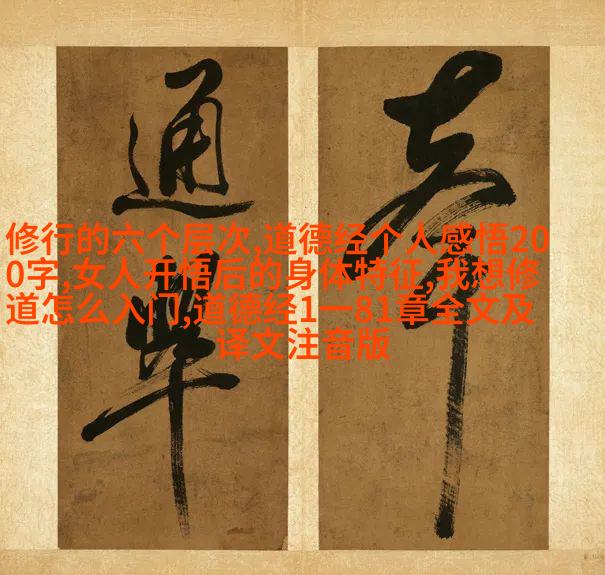 通
修行的六个层次,道德经个人感悟20
0字,女人开悟后的身体特征,我想修
道怎么入门,道德经1一81章全文及
译文注音版